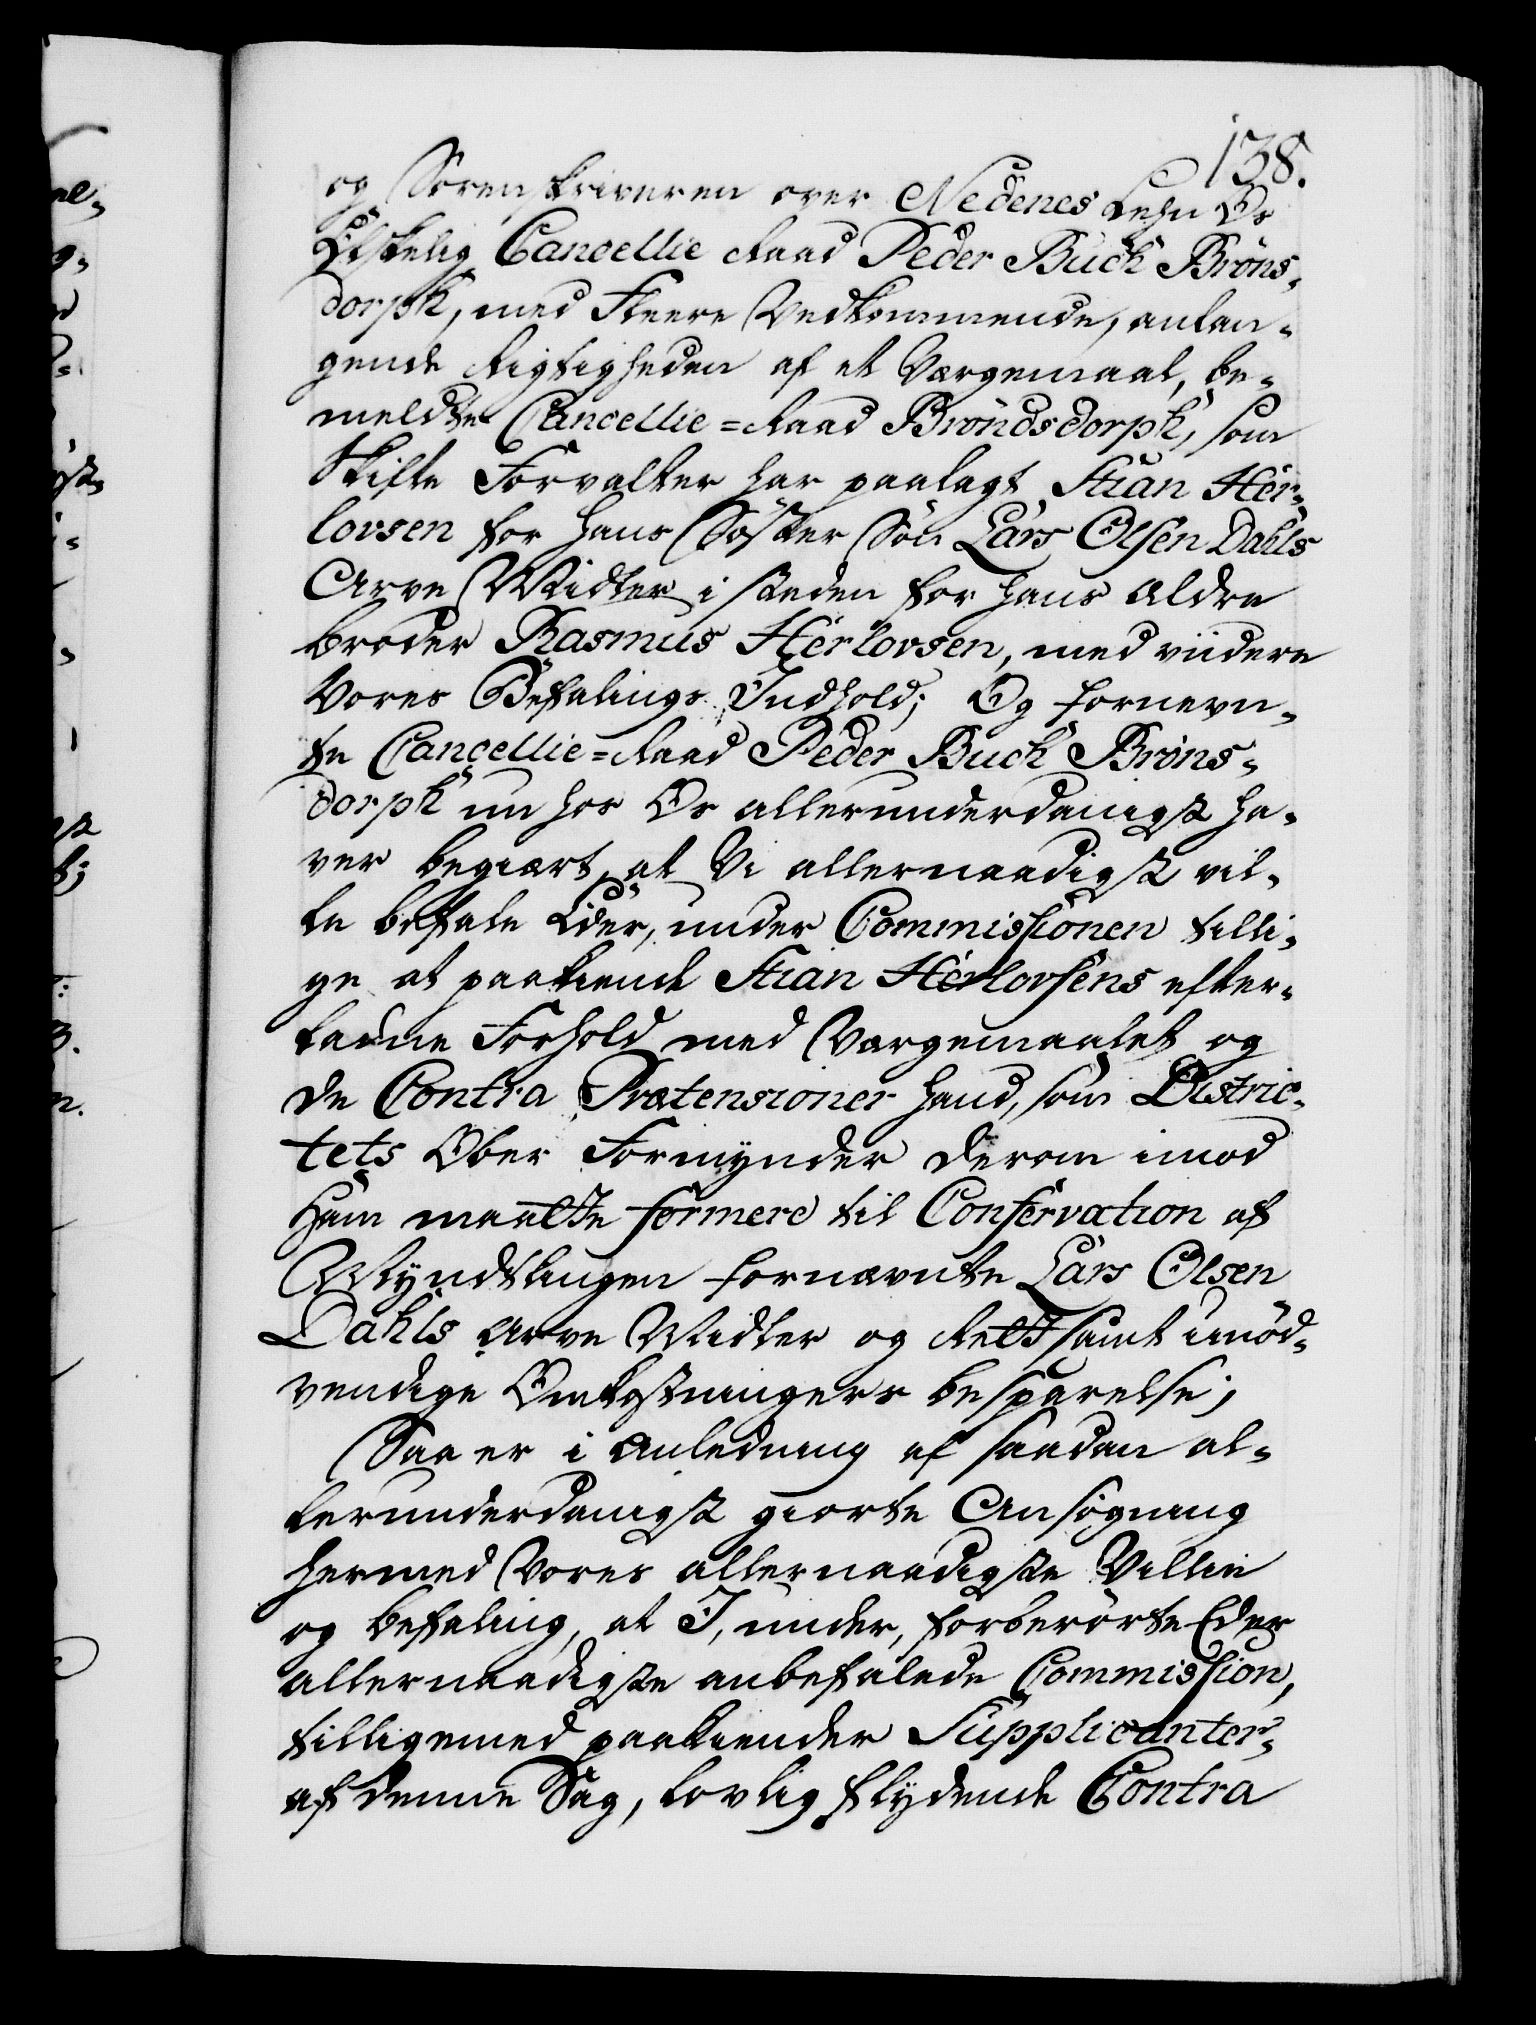 138.
og Sorenskriveren over Nedenes Lehn Os
Elskelig Cancellie Raad Peder Buch Bröns-
dorph, med Fleere Vedkommende, anlan-
gende Rigtigheden af et Værgemaal, be-
meldte Cancellie=Raad Bröndsdorph, som
Skifte Forvalter har paalagt Stian Her-
lovsen for hans Søster Søn Lars Olsen Dahls
Arve Midler i steden for hans ældre
broder Rasmus Herlovsen, med viidere
Vores Befalings Indhold; Og fornevn-
te Cancellie=Raad Peder Buch Bröns-
dorph nu hos Os allerunderdanigst ha-
ver begiært, at Vi allernaadigst vil-
le befale Eder, under Commissionen tilli-
ge at paakiende Stian Herlovsens efter-
ladne Forhold med Værgemaalet og
de Contra Prætensioner hand, som Distric-
tets Ober Formynder derom imod
ham maatte formere til Conservation af
Myndtlingen fornævnte Lars Olsen
Dahls Arve Midler og Rett samt unød-
vendige Omkostningers besparelse;
Saa er i Anledning af saadan al-
lerunderdanigst giorte Ansøgning
hermed Vores allernaadigste Villie
og befaling, at I, under, forberørte Eder
allernaadigste anbefalede Commission,
tilligemed paakiender Supplicanter-
af denne Sag, lovlig flydende Contra